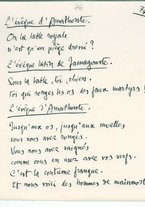 16
L'évêque d'Amathonte.
Ou la table royale
n'est qu'un piège dressé ?
L'évêque latin de Famagouste.
Sous la table, tôt, chiens,
Toi qui ronges les os des faux martyrs !
L'évêque d'Amathonte.
Jusqu'aux os, jusqu'aux moelles
vous nous avez rongés.
vous nous avez saignés
comme vous en avez avec vos serfs.
C'est la coutume franque.
Et nous voici des hommes de mainmorte